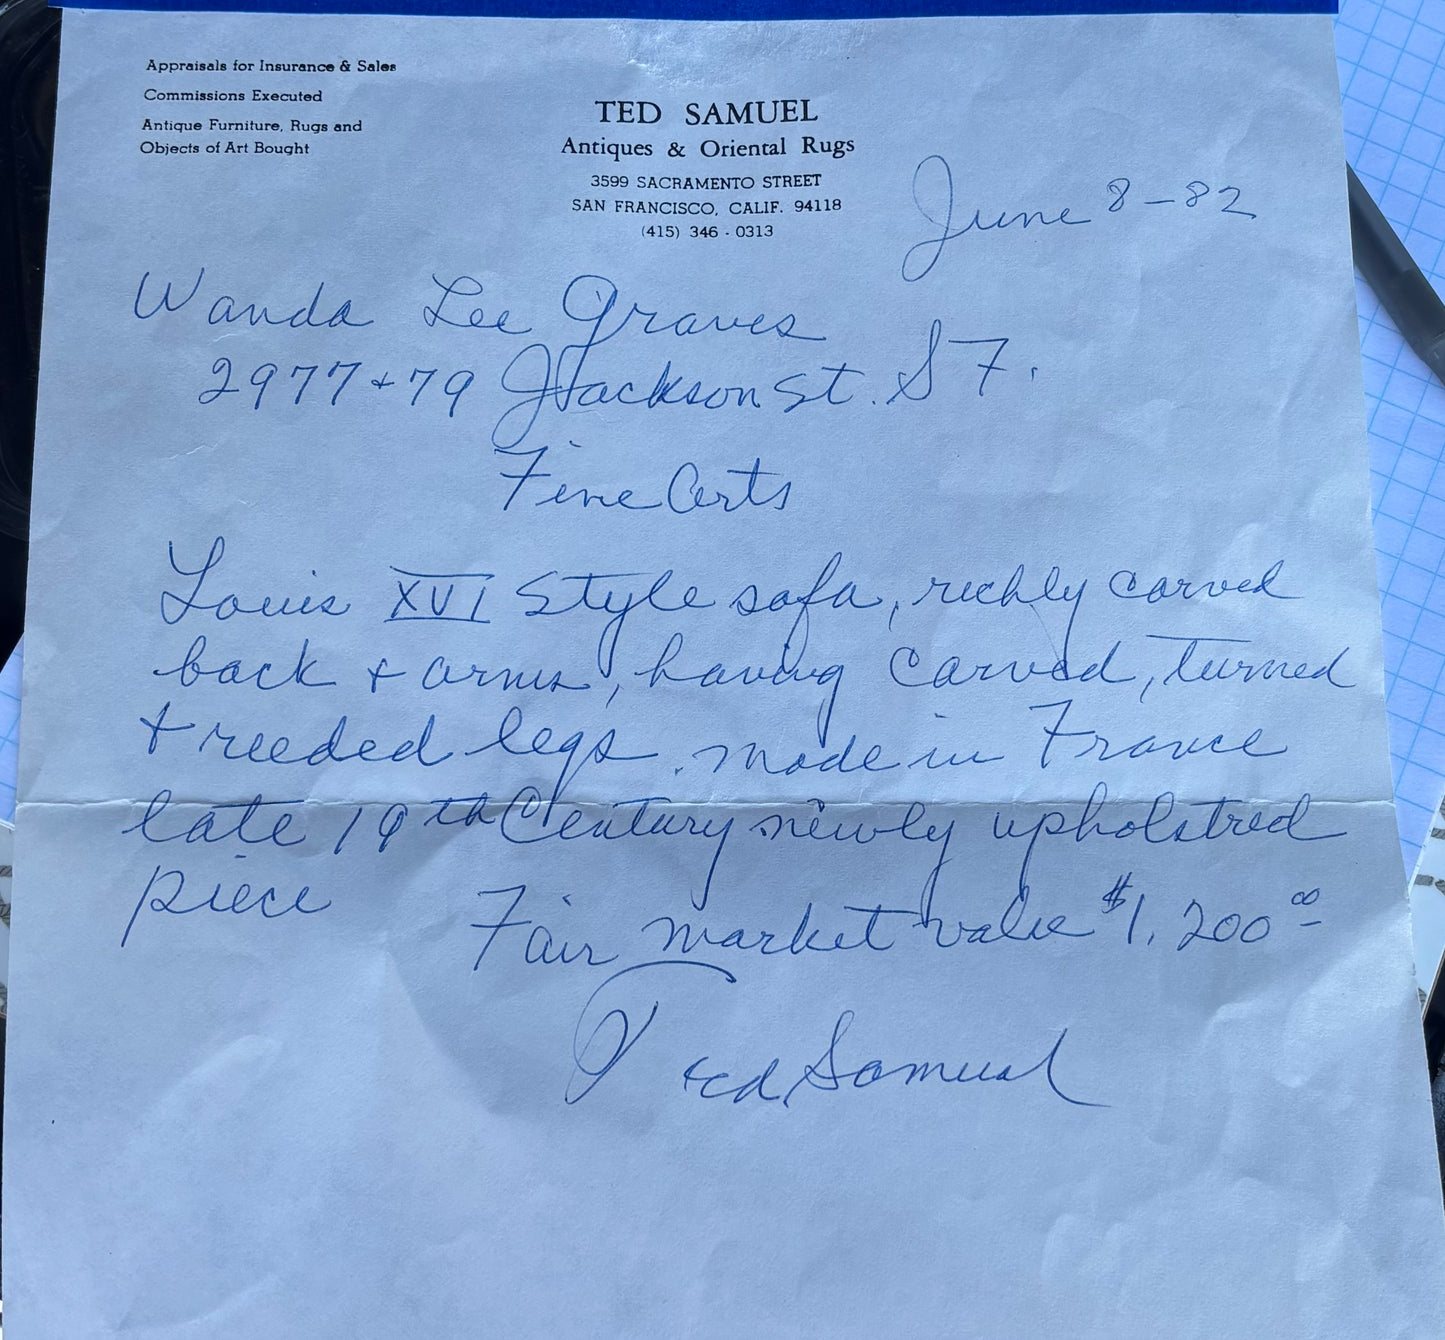 Appraisals for Insurance & Sales
Commissions Executed
Antique Furniture, Rugs and
Objects of Art Bought
TED SAMUEL
Antiques & Oriental Rugs
3599 SACRAMENTO STREET
SAN FRANCISCO, CALIF. 94118
(415) 346 - 0313
June 8-82
Wanda Lee Graves
2977+79 Jackson St. S F.
Fine Arts
Louis XVI Style sofa, richly carved
back + arms, having carved, turned
+ reeded legs. made in France
late 19th Century newly upholstred
piece
Fair market value $1,200.00
Ted Samuel